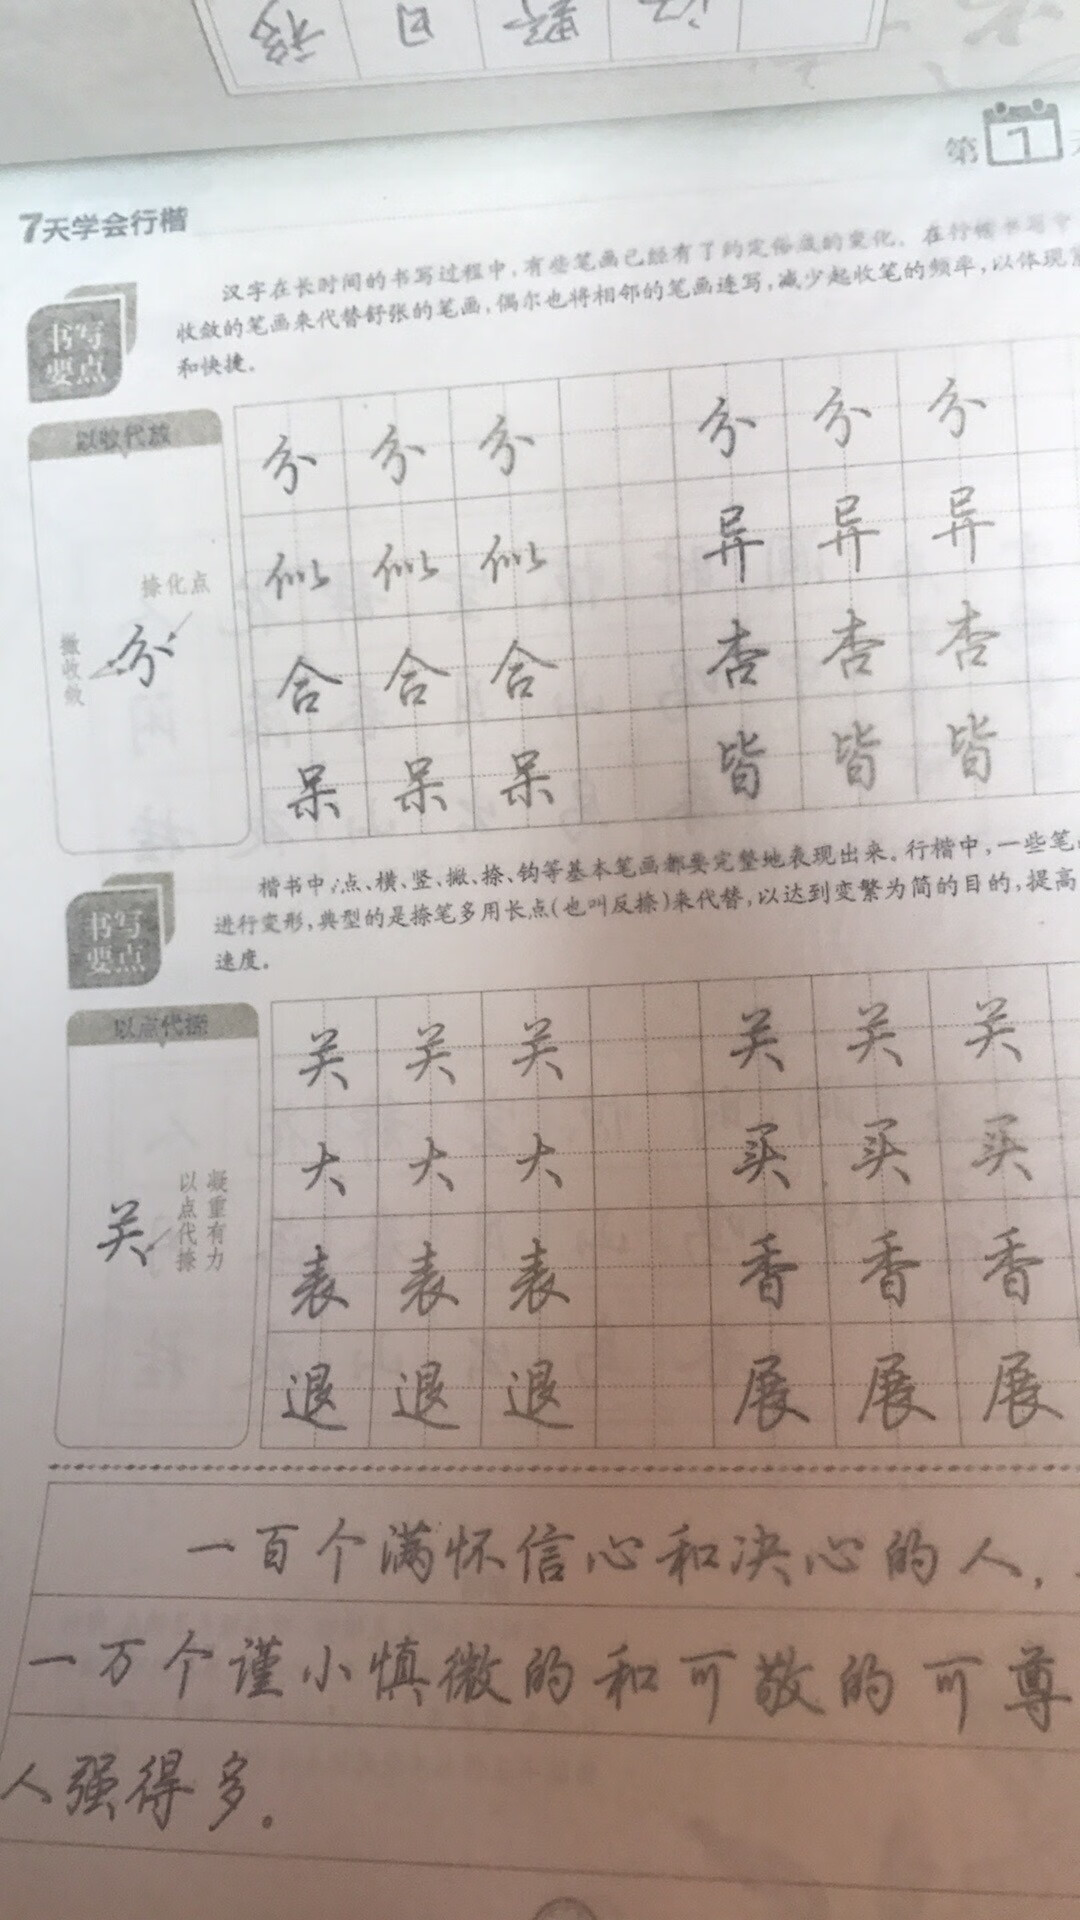 第1
7天学会行楷
汉字在长时间的书写过程中,有些笔画已经有了约定俗成的变化。在行楷书写中
收敛的笔画来代替舒张的笔画,偶尔也将相邻的笔画连写,减少起收笔的频率,以体现
和快捷。
书写
要点
以收代放
捺化点
撇收敛
分
分 分 分 分 分 分
似 似 似 异 异 异
合 合 合 杏 杏 杏
呆 呆 呆 皆 皆 皆
楷书中,点、横、竖、撇、捺、钩等基本笔画都要完整地表现出来。行楷中,一些笔
进行变形,典型的是捺笔多用长点(也叫反捺)来代替,以达到变繁为简的目的,提高
速度。
书写
要点
以点代捺
凝重有力
以点代捺
关
关 关 关 关 关 关
大 大 大 买 买 买
表 表 表 香 香 香
退 退 退 展 展 展
一百个满怀信心和决心的人,
一万个谨小慎微的和可敬的可尊
人强得多。